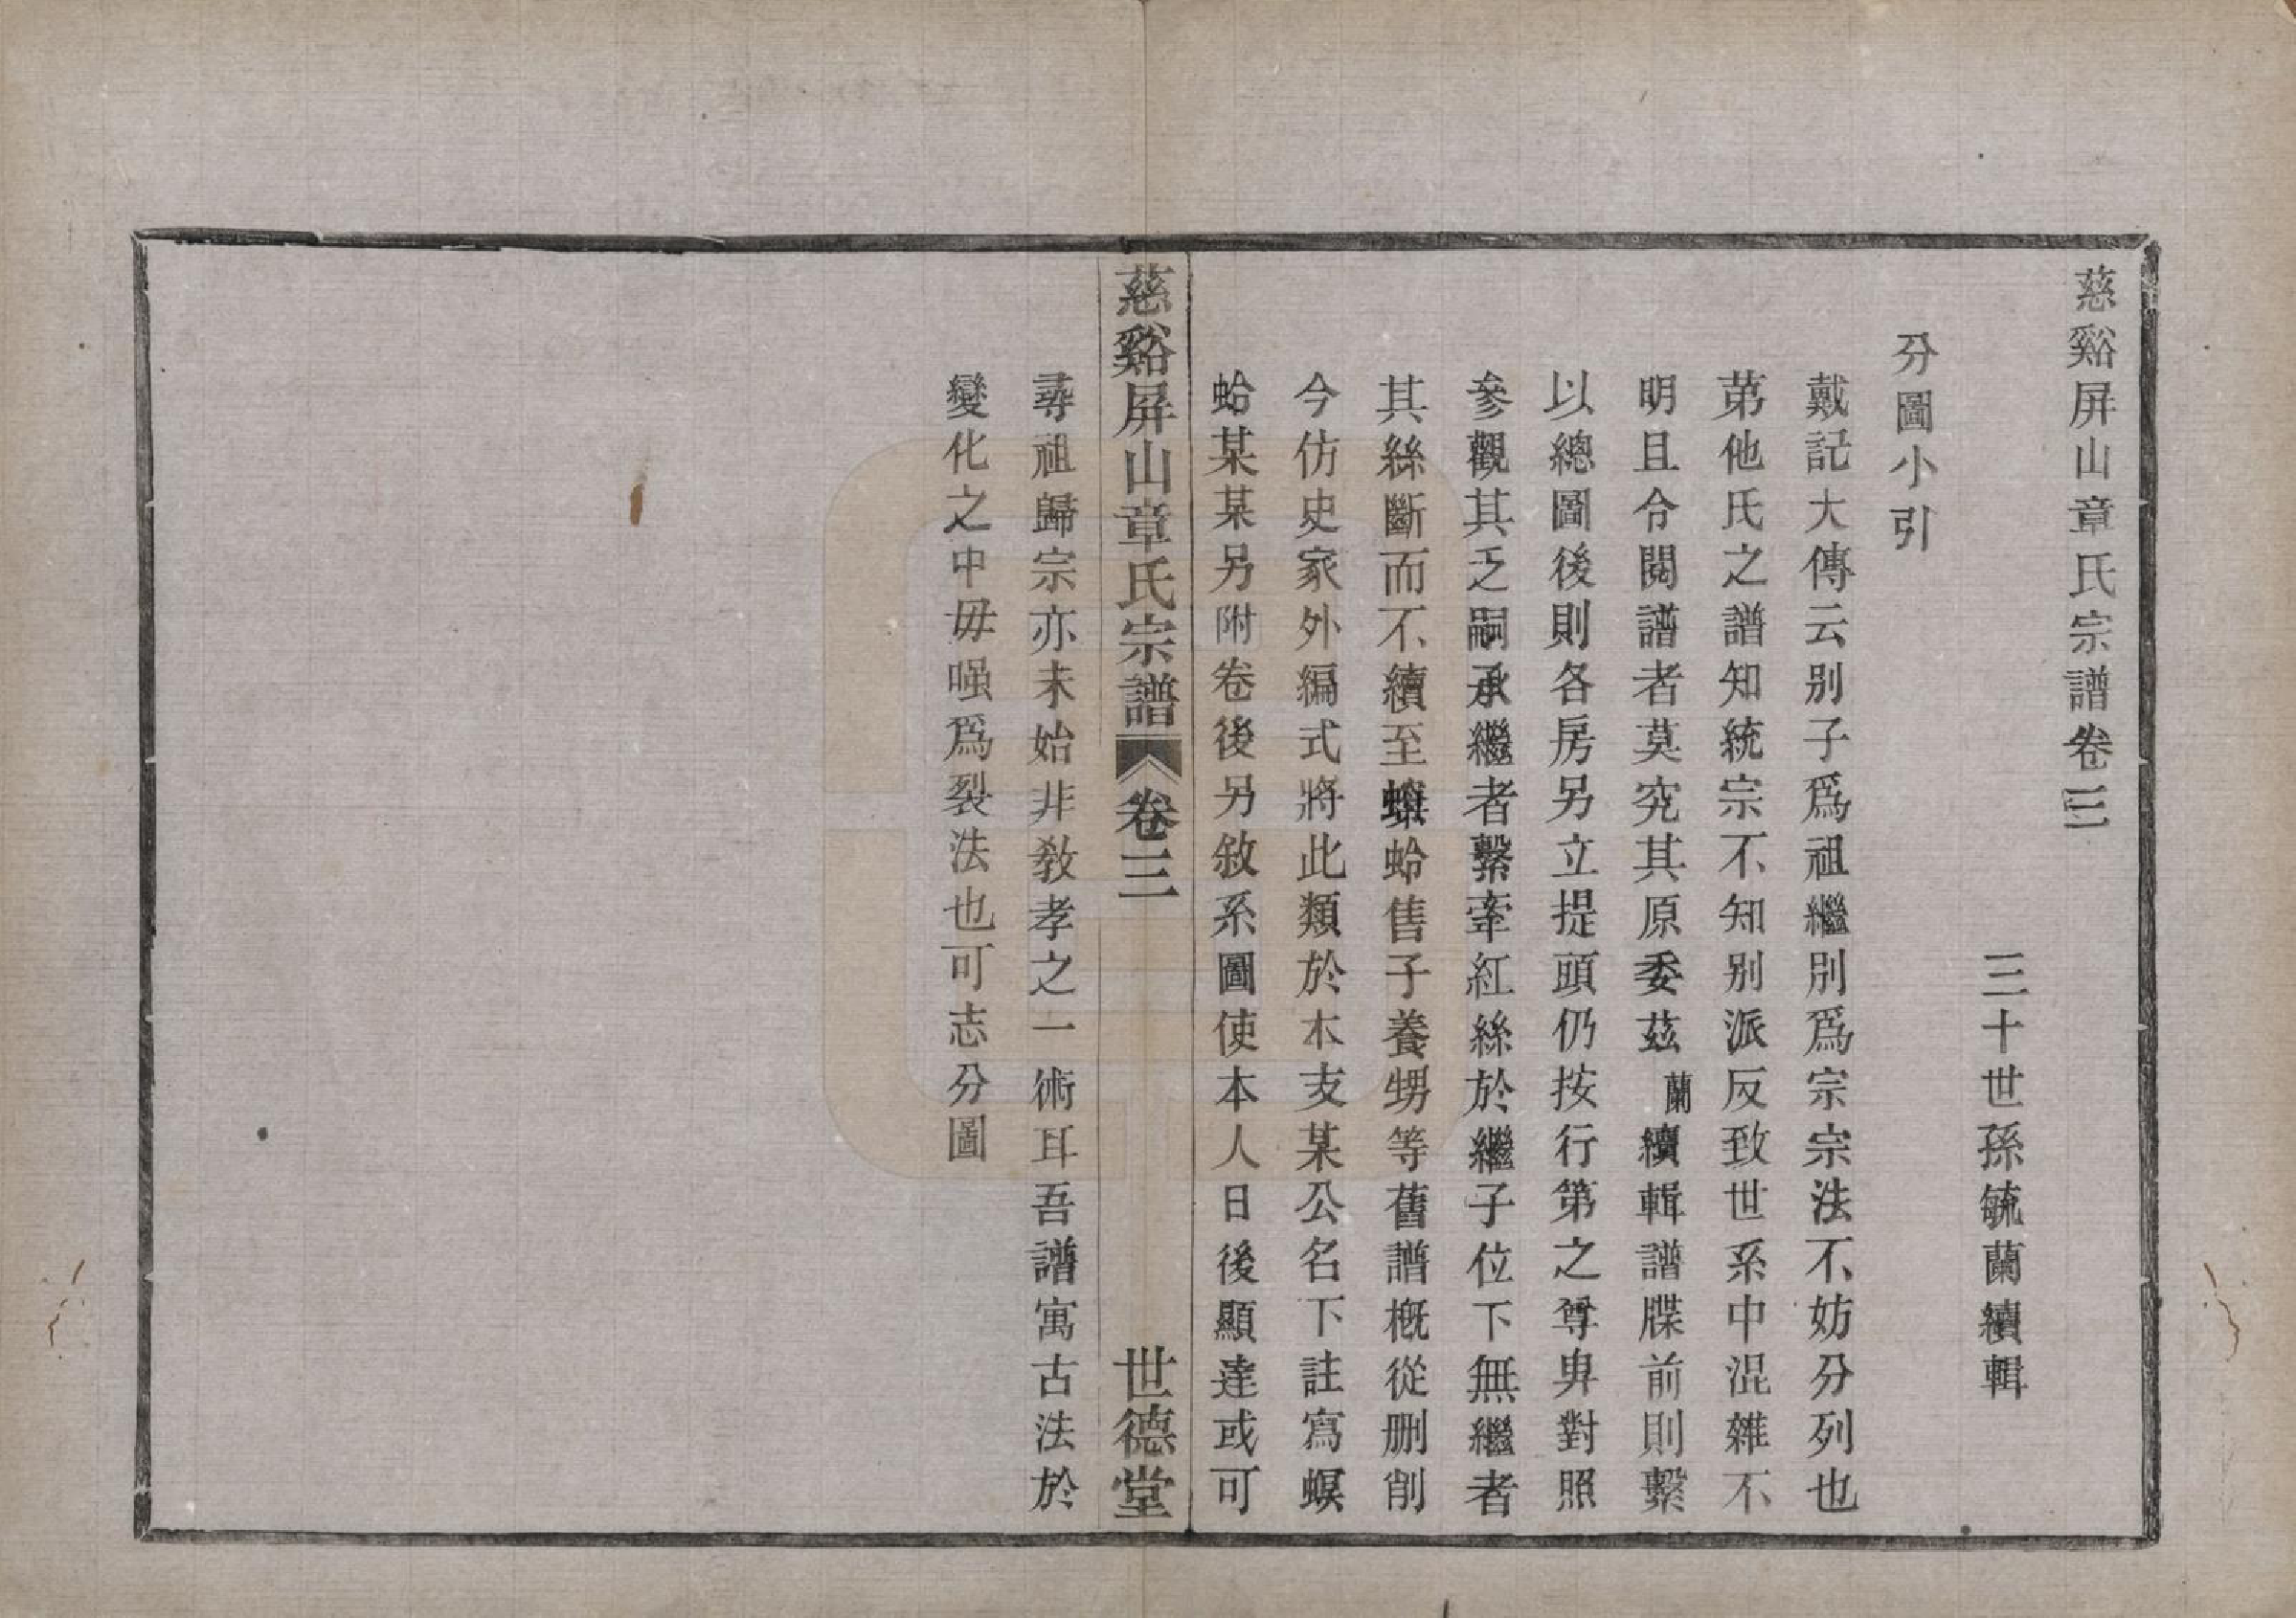 慈谿屏山章氏宗譜卷三
三十世孫毓蘭續輯
分圖小引
戴記大傳云别子爲祖繼别爲宗宗法不妨分列也
苐他氏之譜知統宗不知别派反致世系中混雜不
明且令閱譜者莫究其原委茲蘭續輯譜牒前則繫
以總圖後則各房另立提頭仍按行第之尊卑對照
參觀其乏嗣承繼者繫牽紅絲於繼子位下無繼者
其絲斷而不續至螟蛉售子養甥等舊譜概從删削
今仿史家外編式將此類於本支某公名下註寫螟
蛉某某另附卷後另敘系圖使本人日後顯達或可
慈谿屏山章氏宗譜 卷三 世德堂
尋祖歸宗亦未始非敎孝之一術耳吾譜寓古法於
變化之中毋嗤爲裂法也可志分圖